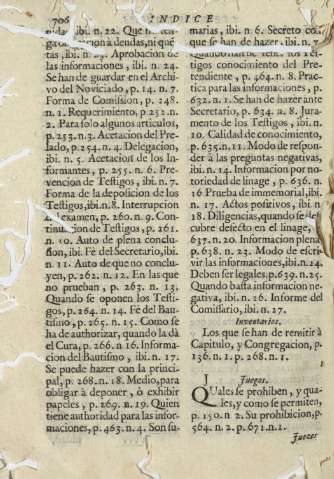 706 INDICE
nidas, ibi. n. 22. Que
à deudas, ni què
ibi. n. 23. Aprobacion de
las informaciones, ibi. n. 24.
Se han de guardar en el Archi-
vo del Noviciado, p. 14. n. 7.
Forma de Comission, p. 248.
n. 1. Requerimiento, p. 251. n.
2. Para solo algunos articulos,
p. 253. n. 3. Acetacion del Pre-
lado, p. 254. n. 4. Delegacion,
ibi. n. 5. Acetacion de los In-
formantes, p. 255. n. 6. Pre-
vencion de Testigos, ibi. n. 7.
Forma de la deposicion de los
Testigos, ibi. n. 8. Interrupcion
examen, p. 260. n. 9. Con-
tinuacion de Testigos, p. 261.
n. 10. Auto de plena conclu-
sion, ibi. Fè del Secretario, ibi.
n. 11. Auto de que no conclu-
yen, p. 262. n. 12. En las que
no prueban, p. 263. n. 13.
Quando se oponen los Testi-
gos, p. 264. n. 14. Fè del Bau-
tismo, p. 265. n. 15. Como se
ha de authorizar, quando la dà
el Cura, p. 266. n. 16. Informa-
cion del Bautismo, ibi. n. 17.
Se puede hazer con la princi-
pal, p. 268. n. 18. Medio, para
obligar à deponer, ò exhibir
papeles, p. 269. n. 19. Quien
tiene authoridad para las infor-
maciones, p. 463. n. 4. Son su-
marias, ibi. n. 6. Secreto con
que se han de hazer, ibi. n. 7.
los tes-
tigos conocimiento del Pre-
tendiente, p. 464. n. 8. Prac-
tica para las informaciones, p.
632. n. 1. Se han de hazer ante
Secretario, p. 634. n. 8. Jura-
mento de los Testigos, ibi. n.
10. Calidad de conocimiento,
p. 635. n. 11. Modo de respon-
der à las preguntas negativas,
ibi. n. 14. Informacion por no-
toriedad de linage, p. 636. n.
16 Prueba de immemorial, ibi.
n. 17. Actos positivos, ibi. n
18. Diligencias, quando se des-
cubre defecto en el linage, p.
637. n. 20. Informacion plena
p. 638. n. 23. Modo de escri-
vir las informaciones, ibi. n. 24.
Deben ser legales, p. 639. n. 25.
Quando basta informacion ne-
gativa, ibi. n. 26. Informe del
Comissario, ibi. n. 27.
Inventarios.
Los que se han de remitir à
Capitulo, y Congregacion, p.
136. n. 1. p. 268. n. 1.
I
Juegos.
QUales se prohiben, y qua-
les, y como se permiten,
p. 150. n 2. Su prohibicion, p.
564. n. 2. p. 671. n. 1.
Juezes